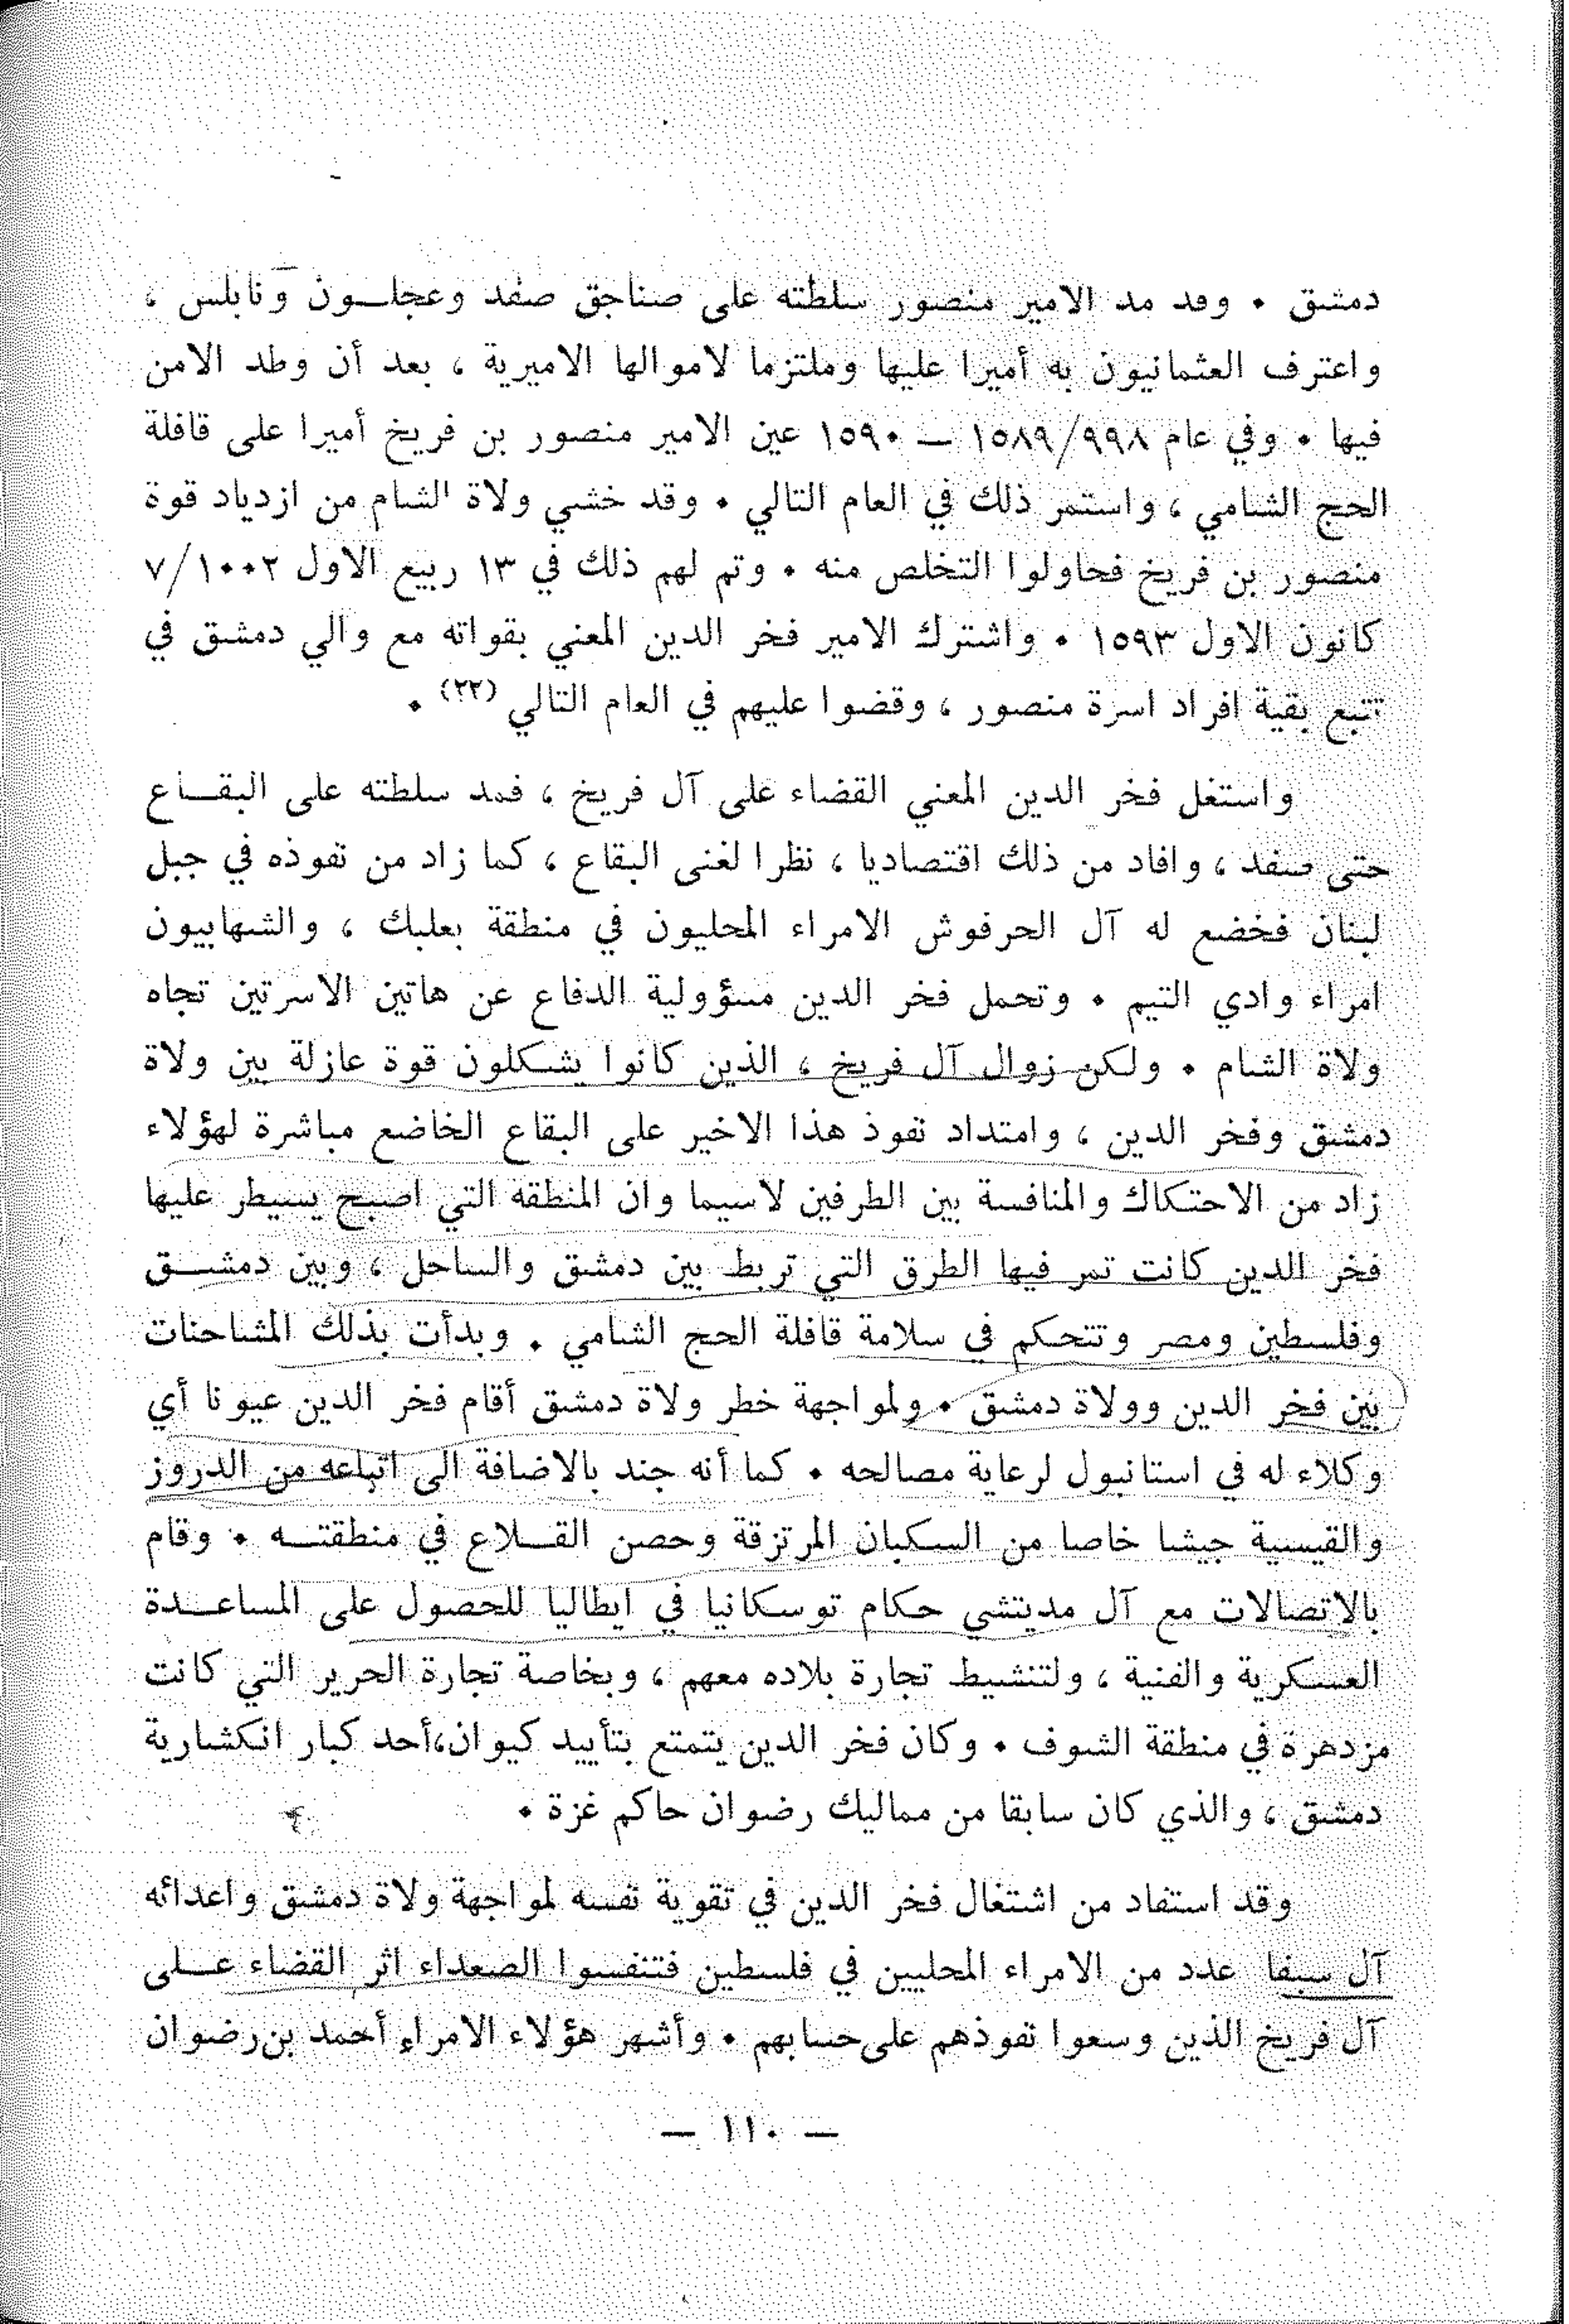 دمشق ٠ وقد مد الامير منصور سلطته على صناجق صفد وعجلـــون ونابلس ،
واعترف العثمانيون به أميرا عليها وملتزما لاموالها الاميرية ، بعد أن وطد الامن
فيها ٠ وفي عام ٩٩٨/١٥٨٩ — ١٥٩٠ عين الامير منصور بن فريخ أميرا على قافلة
الحج الشامي ، واستمر ذلك في العام التالي ٠ وقد خشي ولاة الشام من ازدياد قوة
منصور بن فريخ فحاولوا التخلص منه ٠ وتم لهم ذلك في ١٣ ربيع الاول ١٠٠٢/٧
كانون الاول ١٥٩٣ ٠ واشترك الامير فخر الدين المعني بقواته مع والي دمشق في
تتبع بقية افراد اسرة منصور ، وقضوا عليهم في العام التالي (٢٢) ٠
واستغل فخر الدين المعني القضاء على آل فريخ ، فمد سلطته على البقـــاع
حتى صفد ، وافاد من ذلك اقتصاديا ، نظرا لغنى البقاع ، كما زاد من نفوذه في جبل
لبنان فخضع له آل الحرفوش الامراء المحليون في منطقة بعلبك ، والشهابيون
امراء وادي التيم ٠ وتحمل فخر الدين مسؤولية الدفاع عن هاتين الاسرتين تجاه
ولاة الشام ٠ ولكن زوال آل فريخ ، الذين كانوا يشكلون قوة عازلة بين ولاة
دمشق وفخر الدين ، وامتداد نفوذ هذا الاخير على البقاع الخاضع مباشرة لهؤلاء
زاد من الاحتكاك والمنافسة بين الطرفين لاسيما وان المنطقة التي اصبح يسيطر عليها
فخر الدين كانت تمر فيها الطرق التي تربط بين دمشق والساحل ، وبين دمشـــق
وفلسطين ومصر وتتحكم في سلامة قافلة الحج الشامي ٠ وبدأت بذلك المشاحنات
بين فخر الدين وولاة دمشق ٠ ولمواجهة خطر ولاة دمشق أقام فخر الدين عيونا أي
وكلاء له في استانبول لرعاية مصالحه ٠ كما أنه جند بالاضافة الى اتباعه من الدروز
والقيسية جيشا خاصا من السكبان المرتزقة وحصن القـــلاع في منطقتـــه ٠ وقام
بالاتصالات مع آل مديتشي حكام توسكانيا في ايطاليا للحصول على المساعـــدة
العسكرية والفنية ، ولتنشيط تجارة بلاده معهم ، وبخاصة تجارة الحرير التي كانت
مزدهرة في منطقة الشوف ٠ وكان فخر الدين يتمتع بتأييد كيوان،أحد كبار انكشارية
دمشق ، والذي كان سابقا من مماليك رضوان حاكم غزة ٠
وقد استفاد من اشتغال فخر الدين في تقوية نفسه لمواجهة ولاة دمشق واعدائه
آل سيفا عدد من الامراء المحليين في فلسطين فتنفسوا الصعداء اثر القضاء علـــى
آل فريخ الذين وسعوا نفوذهم على حسابهم ٠ وأشهر هؤلاء الامراء أحمد بن رضوان
— ١١٠ —